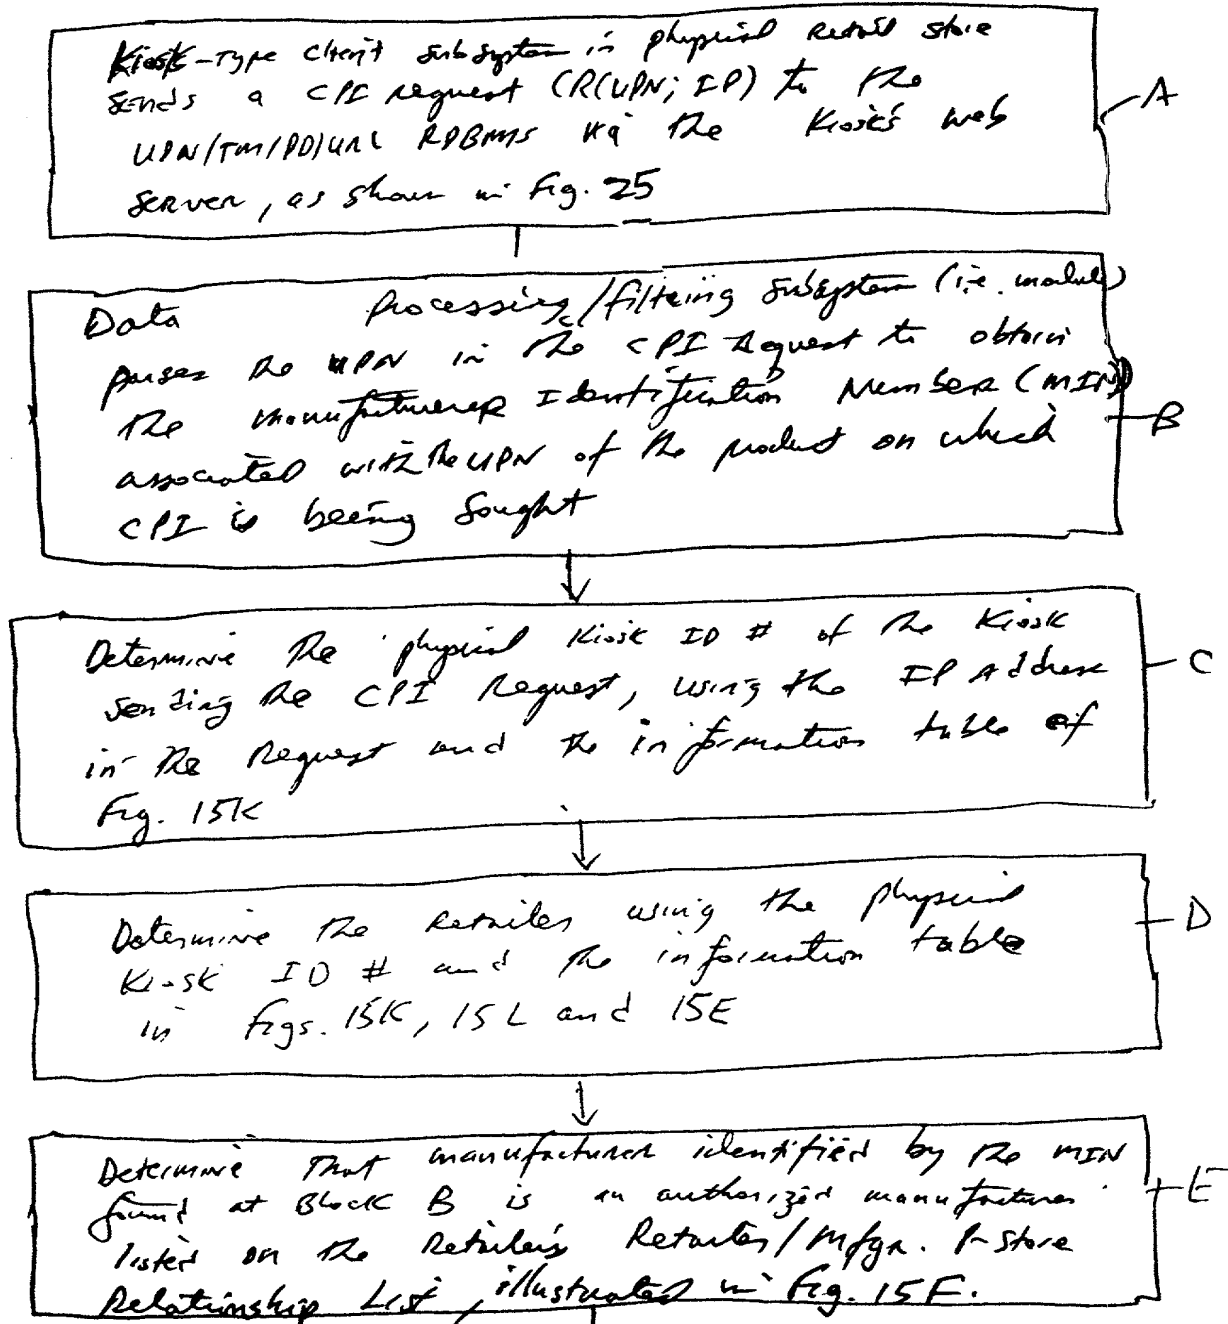 Kiosk-Type Client Subsystem in physical Retail store
sends a CPI request (R(UPN; IP) to the
UPN/TM/PD/URL RDBMS via the Kiosk's web
server, as shown in Fig. 25
A
Data Processing/filtering Subsystem (i.e. module)
parses the UPN in the CPI Request to obtain
the manufacturer Identification Number (MIN)
associated with the UPN of the product on which
CPI is being sought
B
Determine the physical Kiosk ID # of the Kiosk
sending the CPI Request, using the IP Address
in the Request and the information table of
Fig. 15K
C
Determine the Retailer using the physical
Kiosk ID # and the information table
in Figs. 15K, 15L and 15E
D
Determine that manufacturer identified by the MIN
found at Block B is an authorized manufacturer
listed on the Retailer's Retailer/Mfgr. P-Store
Relationship List, illustrated in Fig. 15F.
E